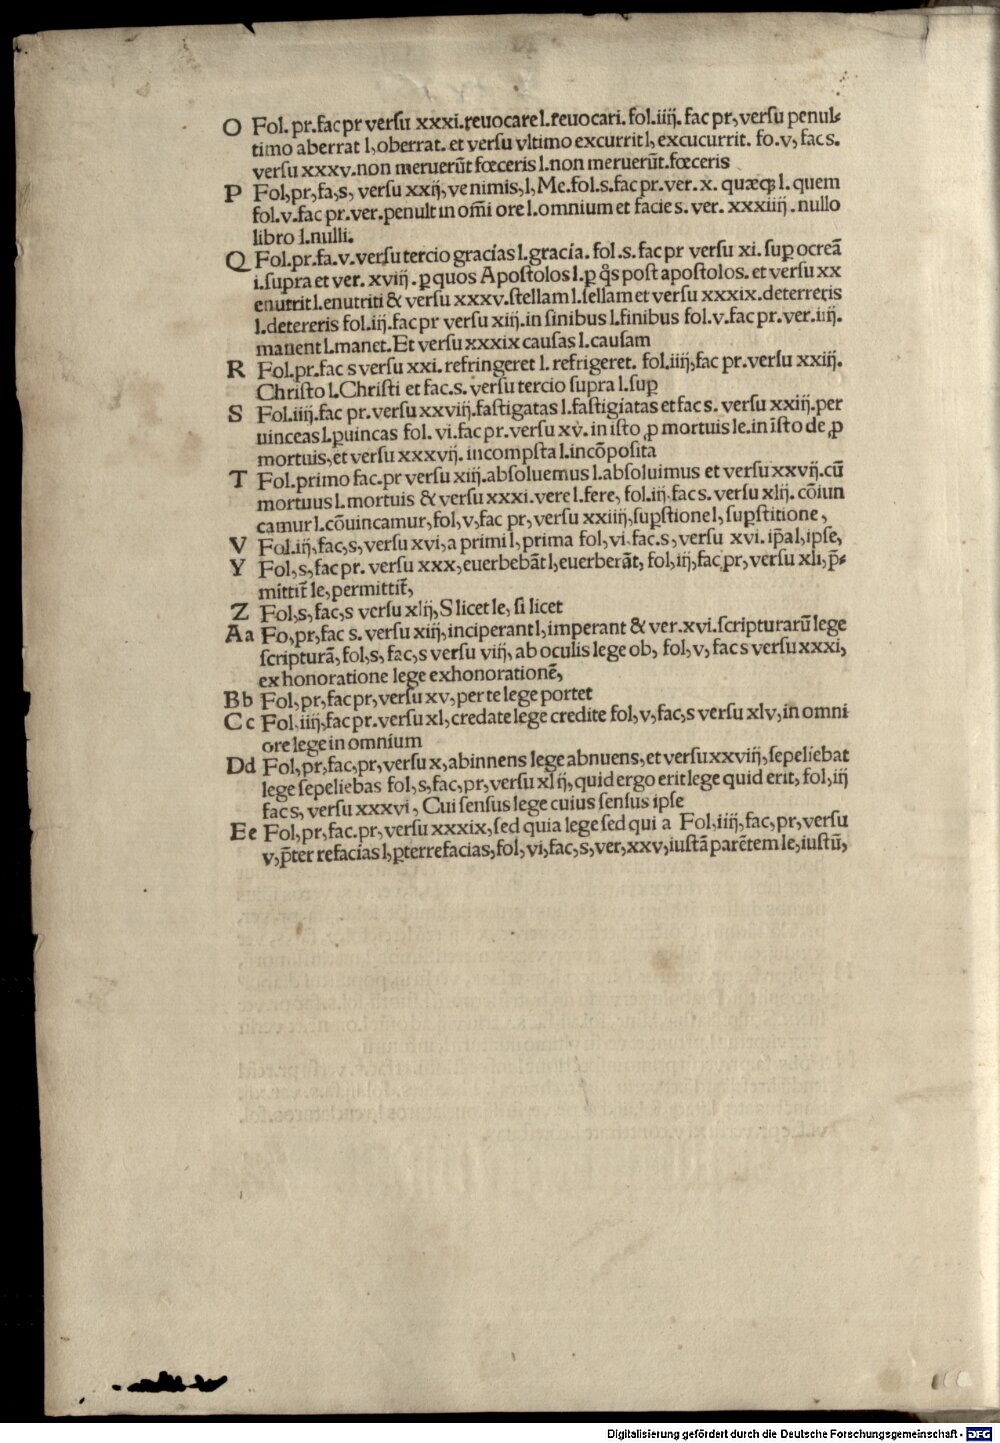 O Fol. pr. fac pr versu xxxi. reuocare l. reuocari. fol. iiij. fac pr, versu penul-
timo aberrat l, oberrat. et versu vltimo excurrit l, excucurrit. fo. v, fac s.
versu xxxv. non meruerūt fœceris l. non meruerūt. fœceris
P Fol, pr, fa, s, versu xxij, ve nimis, l, Me. fol. s. fac pr. ver. x. quæqȝ l. quem
fol. v. fac pr. ver. penult in om̄i ore l. omnium et facie s. ver. xxxiiij. nullo
libro l. nulli.
Q Fol. pr. fa. v. versu tercio gracias l. gracia. fol. s. fac pr versu xi. suꝑ ocreā
i. supra et ver. xviij. ꝑ quos Apostolos l. ꝑ q̄s post apostolos. et versu xx
enutrit l. enutriti & versu xxxv. stellam l. sellam et versu xxxix. deterreris
l. detereris fol. iij. fac pr versu xiij. in sinibus l. finibus fol. v. fac pr. ver. iiij.
manent l. manet. Et versu xxxix causas l. causam
R Fol. pr. fac s versu xxi. refringeret l. refrigeret. fol. iiij, fac pr. versu xxiij.
Christo l. Christi et fac. s. versu tercio supra l. suꝑ
S Fol. iiij. fac pr. versu xxviij. fastigatas l. fastigiatas et fac s. versu xxiij. per
uinceas l. ꝓuincas fol. vi. fac pr. versu xv. in isto ꝓ mortuis le. in isto de ꝓ
mortuis, et versu xxxvij. incompsta l. incōposita
T Fol. primo fac. pr versu xiij. absoluemus l. absoluimus et versu xxvij. cū
mortuus l. mortuis & versu xxxi. vere l. fere, fol. iij. fac s. versu xlij. cōiun
camur l. cōuincamur, fol, v, fac pr, versu xxiiij, suꝑstione l, suꝑstitione,
V Fol. iij, fac, s, versu xvi, a primi l, prima fol, vi. fac. s, versu xvi. ip̄a l, ipse,
Y Fol, s, fac pr. versu xxx, euerbebāt l, euerberāt, fol, iij, fac pr, versu xli, p̄-
mittit̄ le, permittit̄,
Z Fol, s, fac, s versu xlij, S licet le, si licet
Aa Fo, pr, fac s. versu xiij, inciperant l, imperant & ver. xvi. scripturarū lege
scripturā, fol, s, fac, s versu viij, ab oculis lege ob, fol, v, fac s versu xxxi,
ex honoratione lege exhonorationē,
Bb Fol, pr, fac pr, versu xv, per te lege portet
Cc Fol, iiij, fac pr. versu xl, credate lege credite fol, v, fac, s versu xlv, in omni
ore lege in omnium
Dd Fol, pr, fac, pr, versu x, abinnens lege abnuens, et versu xxviij, sepeliebat
lege sepeliebas fol, s, fac, pr, versu xlij, quid ergo erit lege quid erit, fol, iij
fac s, versu xxxvi, Cui sensus lege cuius sensus ipse
Ee Fol, pr, fac. pr, versu xxxix, sed quia lege sed qui a Fol, iiij, fac, pr, versu
v, p̄ter refacias l, ꝑterrefacias, fol, vi, fac, s, ver, xxv, iustā parētem le, iustū,
Digitalisierung gefördert durch die Deutsche Forschungsgemeinschaft - DFG